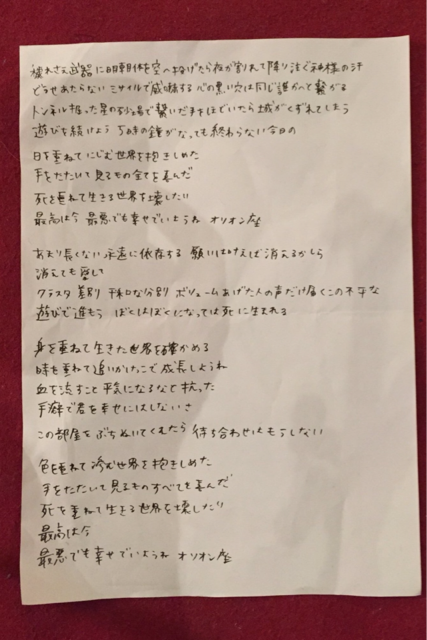 穢れさえ武器に明朝体を空へ投げたら夜が割れて降り注ぐ神様の汗
どうせあたらない ミサイルで威嚇する 心の黒い穴は同じ誰かへと繋がる
トンネル掘った 星の砂場で繋いだ手をほどいたら 城がくずれてしまう
遊びを続けよう 5時の鐘がなっても終わらない今日の
日を重ねてにじむ世界を抱きしめた
手をたたいて見るもの全てを喜んだ
死を重ねて生きる世界を壊したい
最高は今 最悪でも幸せでいようね オリオン座
あまり長くない永遠に依存する 願いは叶えば消えるかしら
消えても愛して
クラスタ 差別 平和な分別 ボリュームあげた人の声だけ届くこの不平な
遊びで進もう ぼくはぼくになっては死に生まれる
身を重ねて生きた世界を確かめる
時を重ねて追いかけっこで成長しようね
血を流すこと平気になるなと抗った
手癖で君を幸せにはしないさ
この部屋をぶちぬいてくむたら 待ち合わせはもうしない
色を重ねて滲む世界を抱きしめた
手をたたいて見るものすべてを喜んだ
死を重ねて生きる世界を壊したい
最高は今
最悪でも幸せでいようね オリオン座